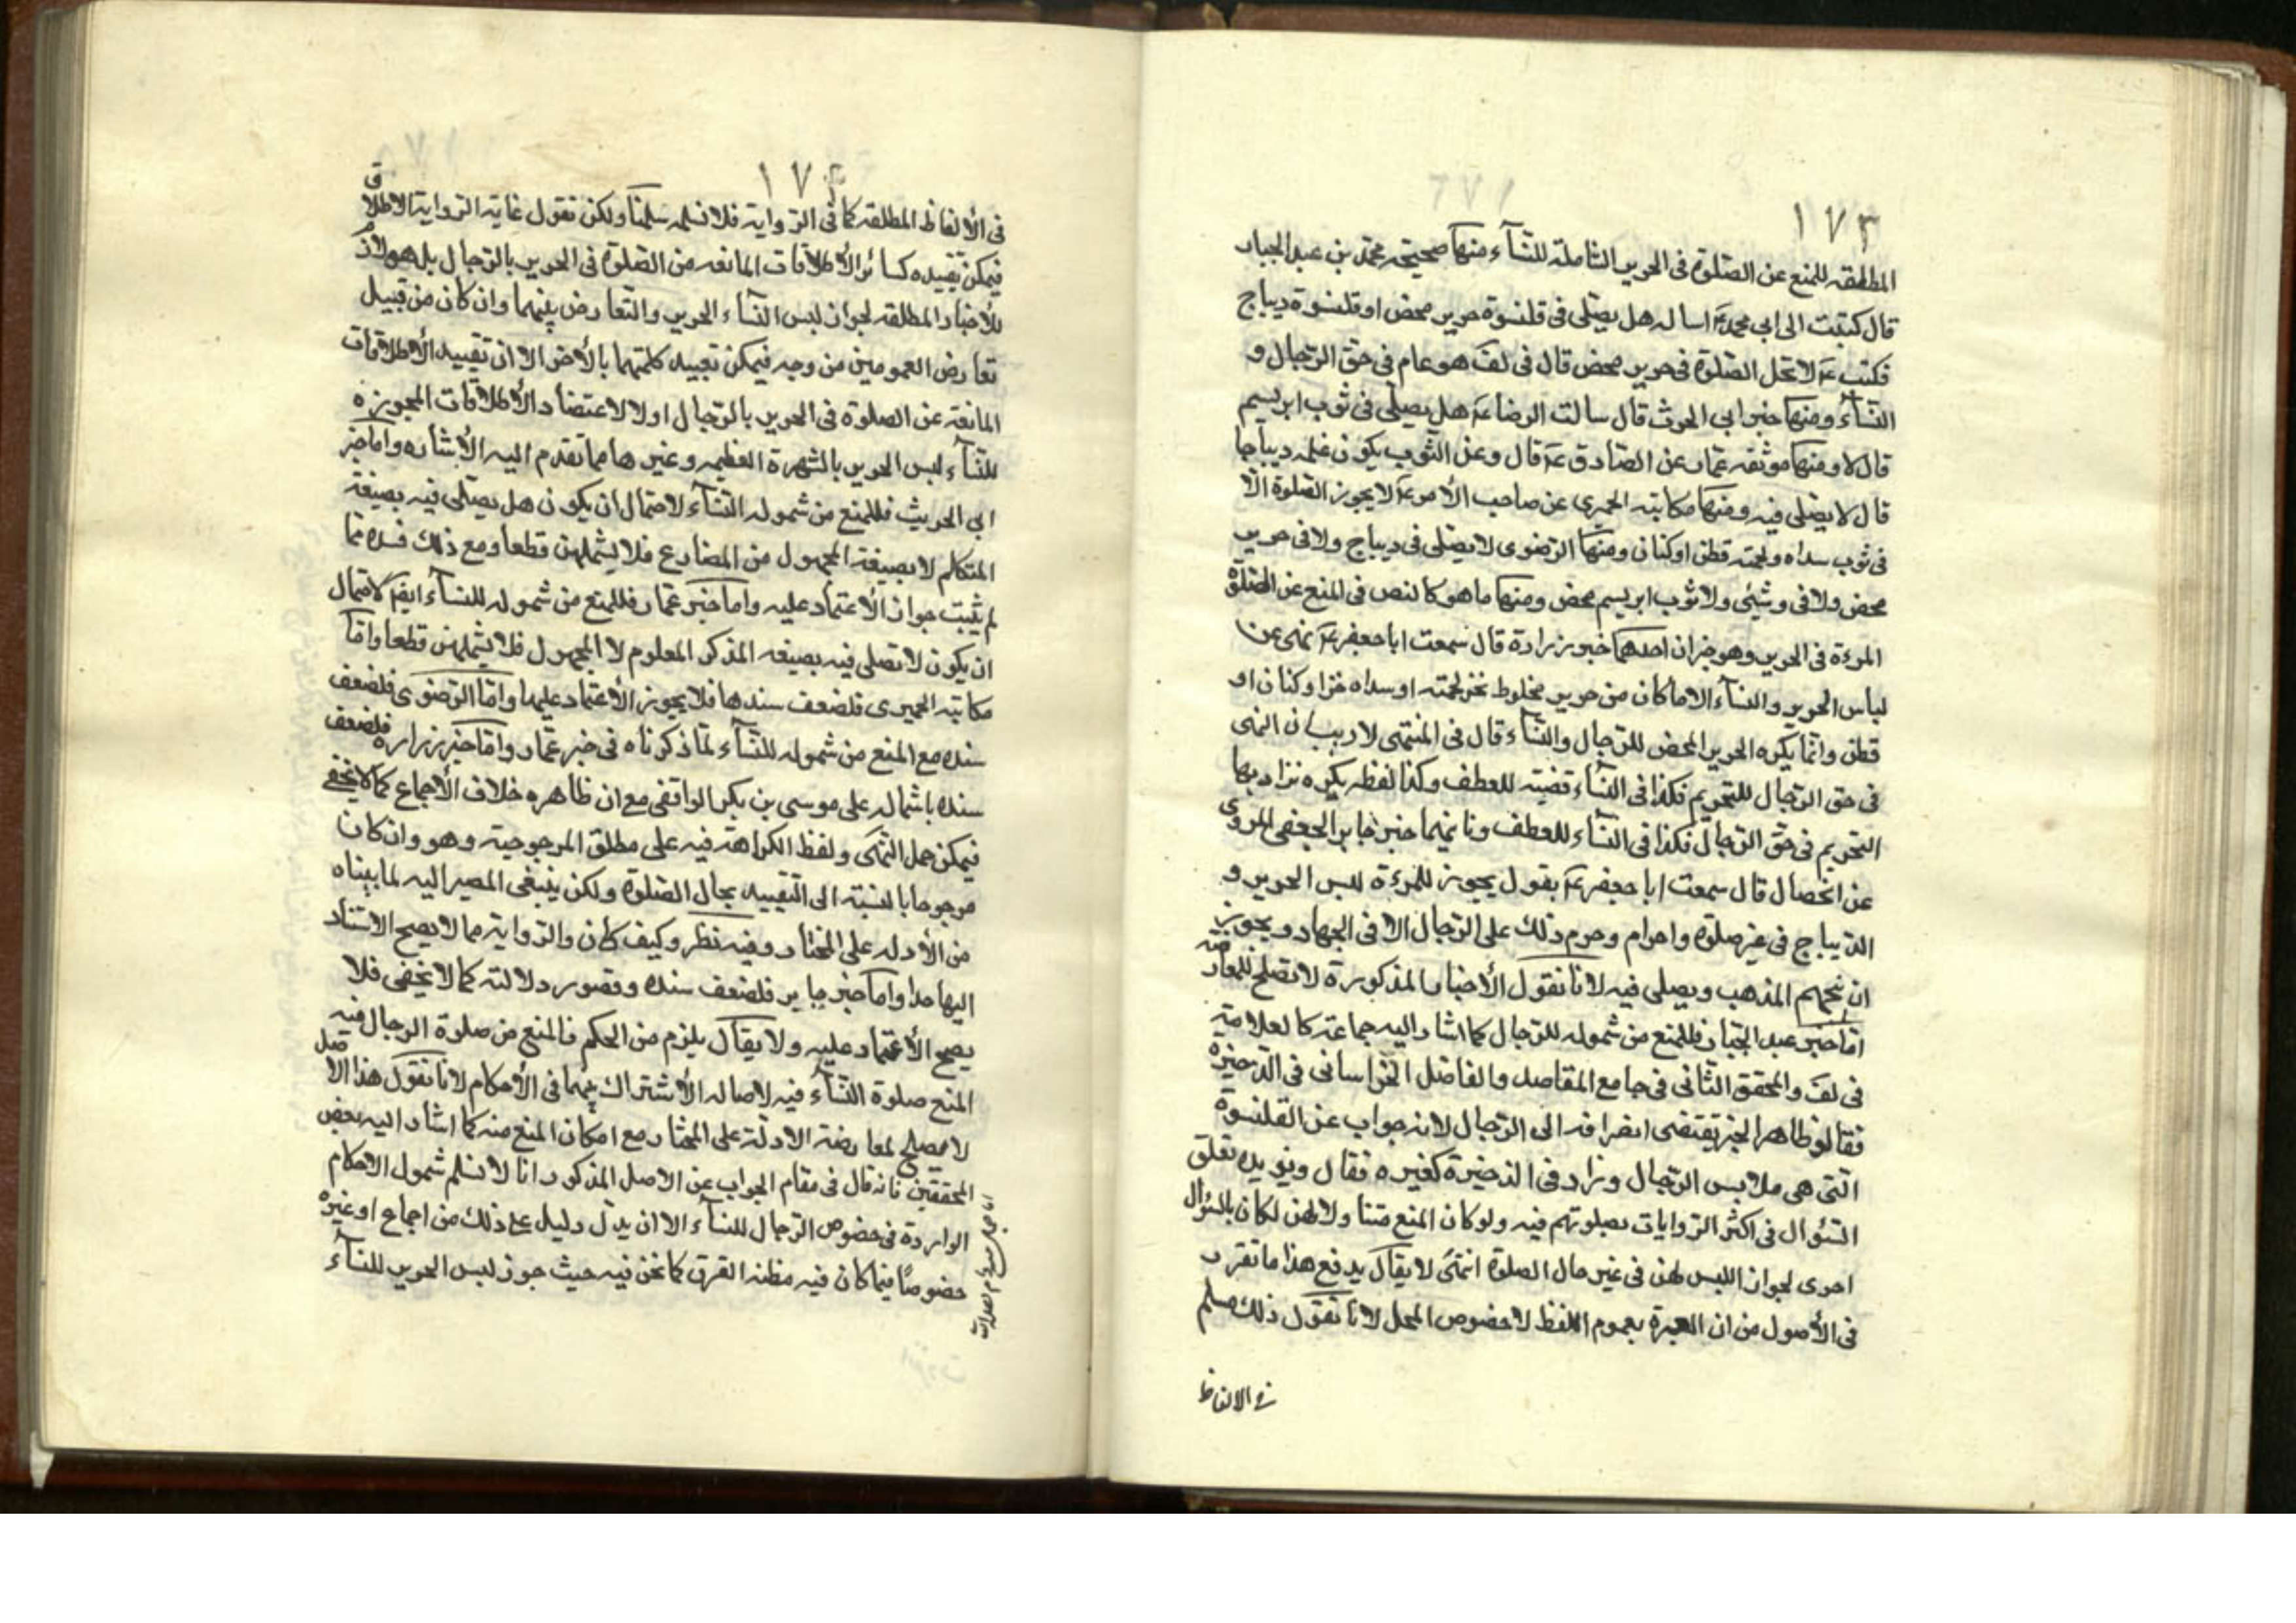 ١٧٣
المطلقه للمنع عن الصلوة فى الحرير الشاملة للنسآء منها صحيحة محمد بن عبد الجبار
قال كتبت الى ابى محمد ع اساله هل يصلى فى قلنسوة حرير محض او قلنسوة ديباج
فكتب ع لا تحل الصلوة فى حرير محض قال فى لف هو عام فى حق الرجال و
النسآء ومنها خبر ابى الحرث قال سالت الرضا ع هل يصلى فى ثوب ابريسم
قال لا ومنها موثقه عمار عن الصادق ع قال وعن الثوب يكون علمه ديباجا
قال لا يصلى فيه ومنها مكاتبه الحميرى عن صاحب الأمر ع لا يجوز الصلوة الا
فى ثوب سداه ولحمته قطن او كتان ومنها الرضوى لا يصلى فى ديباج ولا فى حرير
محض ولا فى وشئى ولا ثوب ابريسم محض ومنها ما هو كالنص فى المنع عن الصلوة
المرءة فى الحرير وهو خبران احدهما خبر زرارة قال سمعت ابا جعفر ع نهى عن
لباس الحرير والنسآء الا ما كان من حرير مخلوط بخز لحمته او سداه خز او كتان او
قطن وانما يكره الحرير المحض للرجال والنسآء قال فى المنتهى لا ريب ان النهى
فى حق الرجال للتحريم فكذا فى النسآء قضية للعطف وكذا لفظه يكره يراد بها
التحريم فى حق الرجال فكذا فى النسآء للعطف وثانيهما خبر جابر الجعفى المروى
عن الخصال قال سمعت ابا جعفر ع يقول يجوز للمرءة لبس الحرير و
الديباج فى غير صلوة واحرام وحرم ذلك على الرجال الا فى الجهاد ويجوز
ان يتختم الذهب ويصلى فيه لانا نقول الأخبار المذكورة لا تصلح للمعارضه
اما خبر عبد الجبار فللمنع من شموله للرجال كما اشار اليه جماعة كالعلامة
فى لف والمحقق الثانى فى جامع المقاصد والفاضل الخراسانى فى الذخيرة
فقالوا ظاهر الخبر يقتضى انصرافه الى الرجال لانه جواب عن القلنسوة
التى هى ملابس الرجال وزاد فى الذخيرة كغيره فقال ويؤيده تعلق
السؤال فى اكثر الروايات بصلوتهم فيه ولو كان المنع متنا ولا لهن لكان بالسؤال
احرى لجواز اللبس لهن فى غير حال الصلوة انتهى لا يقال يدفع هذا ما تقرر
فى الأصول من ان العبرة بعموم اللفظ لا خصوص المحل لانا نقول ذلك مسلم
فى الالفاظ
١٧٤
فى الألفاظ المطلقه كما فى الرواية فلا نسلمه سلمنا ولكن نقول غاية الرواية الاطلاق
فيمكن تقييده كسائر الأطلاقات المانعه من الصلوة فى الحرير بالرجال بل هو لازم
للأخبار المطلقه لجواز لبس النسآء الحرير والتعارض بينهما وان كان من قبيل
تعارض العمومين من وجه فيمكن تقييد كلمتهما بالأخر الا ان تقييد الأطلاقات
المانعه عن الصلوة فى الحرير بالرجال اولا لاعتضاد الأطلاقات المجوزه
للنسآء لبس الحرير بالشهرة العظيمه وغيرها مما تقدم اليه الأشاره واما خبر
ابى الحريث فللمنع من شموله النسآء لاحتمال ان يكون هل يصلى فيه بصيغة
المتكلم لا بصيغة المجهول من المضارع فلا يشملهن قطعا ومع ذلك فسنده مما
لم يثبت جواز الأعتماد عليه واما خبر عمار فللمنع من شموله للنسآء ايضا لاحتمال
ان يكون لا تصلى فيه بصيغه المذكر المعلوم لا المجهول فلا يشملهن قطعا واما
مكاتبه الحميرى فلضعف سندها فلا يجوز الأعتماد عليها واما الرضوى فلضعف
سنده مع المنع من شموله للنسآء لما ذكرناه فى خبر عمار واما خبر زراره فلضعف
سنده باشماله على موسى بن بكر الواقفى مع ان ظاهره خلاف الأجماع كما لا يخفى
فيمكن حمل النهى ولفظ الكراهة فيه على مطلق المرجوحية وهو وان كان
مرجوحا بالنسبة الى التقييد بحال الصلوة ولكن ينبغى المصير اليه لما بيناه
من الأدله على المختار وفيه نظر وكيف كان والرواية مما لا يصح الاستناد
اليها جدا واما خبر جابر فلضعف سنده وقصور دلالته كما لا يخفى فلا
يصح الأعتماد عليه ولا يقال يلزم من الحكم فالمنع من صلوة الرجال فيه
المنع صلوة النسآء فيه لاصاله الأشتراك بينهما فى الأحكام لانا نقول هذا الاصل
لا يصلح لمعارضة الادلة على المختار مع امكان المنع منه كما اشار اليه بعض
المحققين فانه قال فى مقام الجواب عن الاصل المذكور انا لا نسلم شمول الاحكام
الواردة فى خصوص الرجال للنسآء الا ان يدل دليل على ذلك من اجماع او غيره
خصوصا فيما كان فيه مظنه الفرق كما نحن فيه حيث جوز لبس الحرير للنسآء